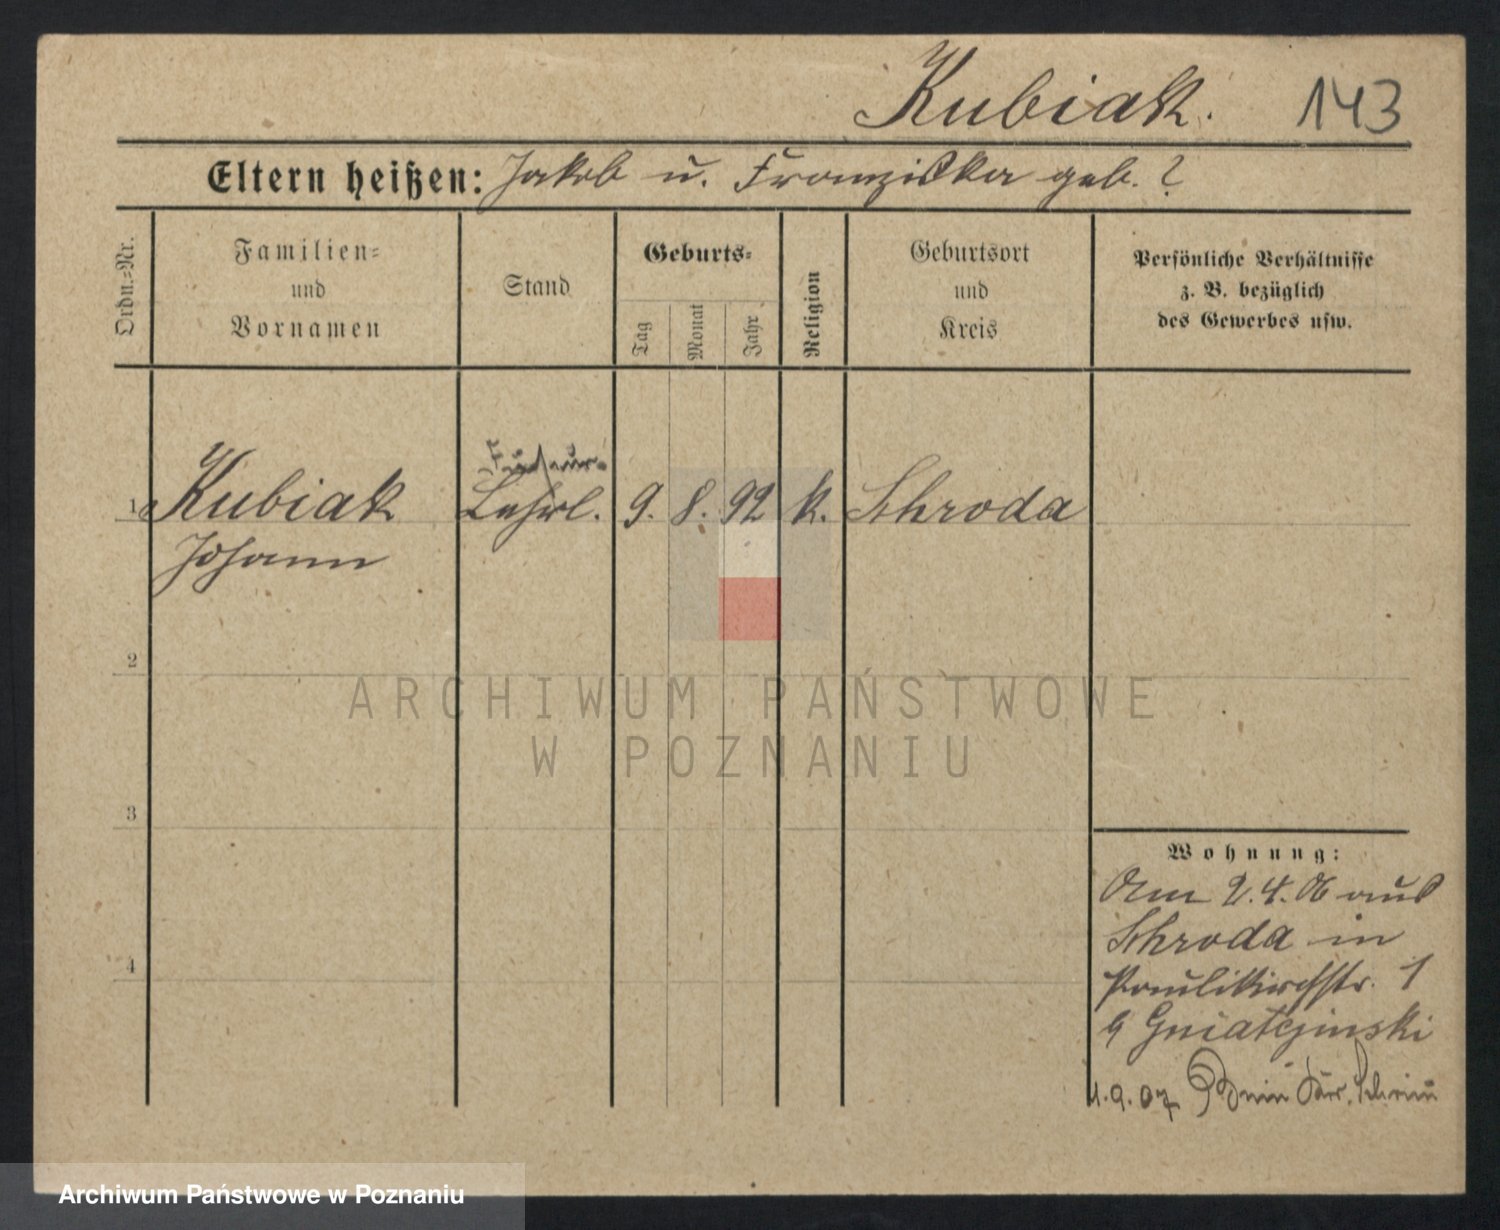 Kubiak. 143
Eltern heißen: Jakob u. Franziska geb. ?
Ordn.-Nr.
Familien-
und
Vornamen
Stand
Geburts-
Tag
Monat
Jahr
Religion
Geburtsort
und
Kreis
Persönliche Verhältnisse
z. B. bezüglich
des Gewerbes usw.
1 Kubiak Lehrl. 9. 8. 92 k. Schroda
Johann
2
ARCHIWUM PAŃSTWOWE
W POZNANIU
3
4
Wohnung:
Am 2.4.06 aus
Schroda in
Paulikirchstr. 1
b Gniatczinski
1.9.07
Archiwum Państwowe w Poznaniu